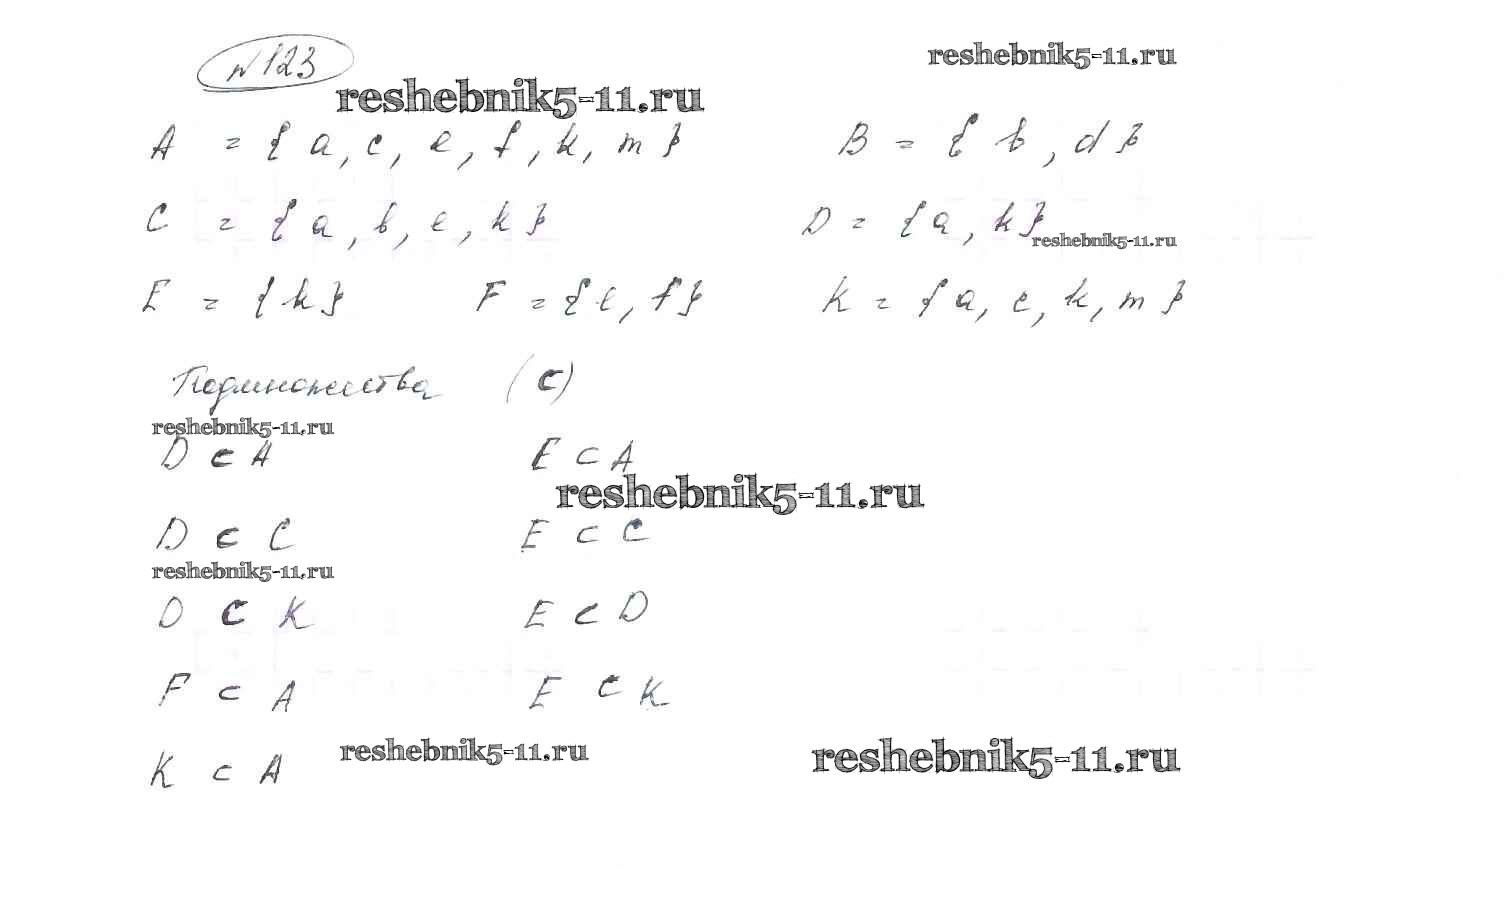 №123
reshebnik5-11.ru
reshebnik5-11.ru
A = {a, c, e, f, k, m} B = {b, d}
C = {a, b, e, k} D = {a, k}
reshebnik5-11.ru
E = {k} F = {e, f} K = {a, c, k, m}
Подмножества (⊂)
reshebnik5-11.ru
D ⊂ A E ⊂ A
reshebnik5-11.ru
D ⊂ C E ⊂ C
reshebnik5-11.ru
D ⊂ K E ⊂ D
F ⊂ A E ⊂ K
reshebnik5-11.ru
reshebnik5-11.ru
K ⊂ A